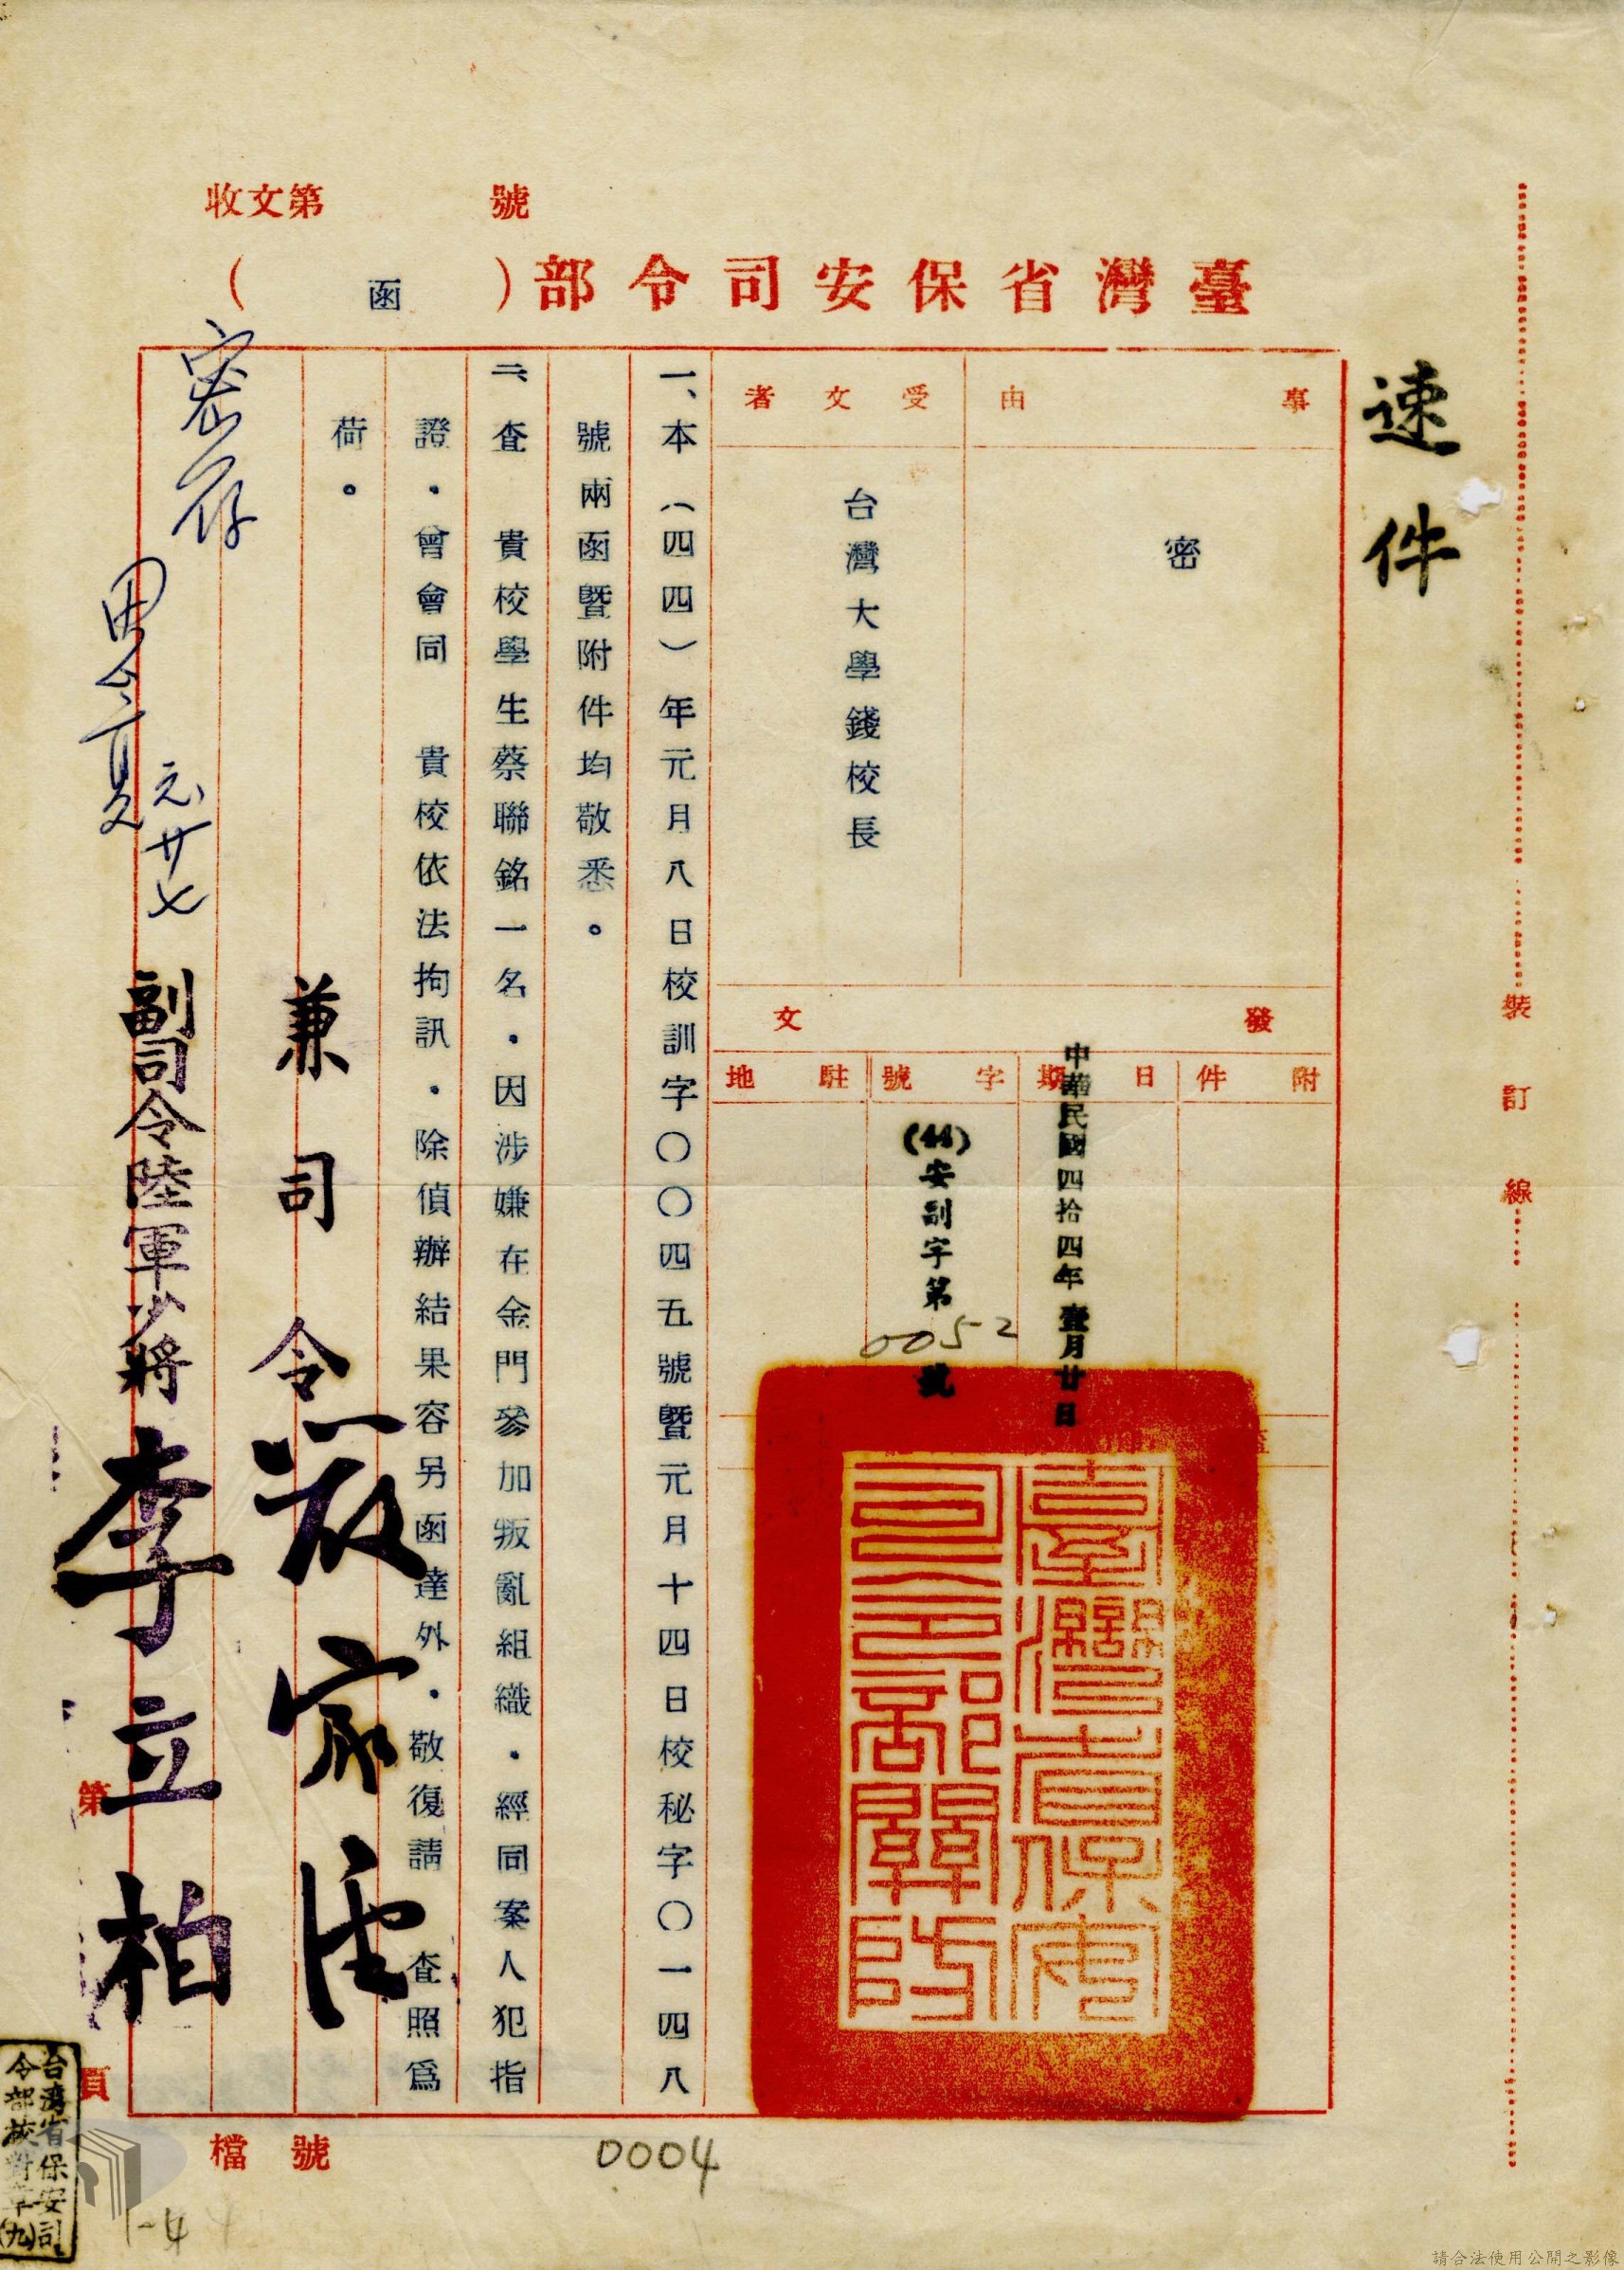 收文第　　號
臺灣省保安司令部（函）
速件
裝訂線
事由
密
受文者
台灣大學錢校長
發文
附件
日期
中華民國四拾四年壹月廿日
字號
(44)安副字第0052號
駐地
一、本（四四）年元月八日校訓字〇〇四五號暨元月十四日校秘字〇一四八
號兩函暨附件均敬悉。
二、查　貴校學生蔡聯銘一名．因涉嫌在金門參加叛亂組織．經同案人犯指
證．曾會同　貴校依法拘訊．除偵辦結果容另函達外．敬復請　查照為
荷。
兼司令嚴家淦
副司令陸軍少將李立柏
密存
元廿七
臺灣省保安司令部關防
第　頁
檔號
0004
1-4
台灣省保安司
令部校對章(九)
請合法使用公開之影像